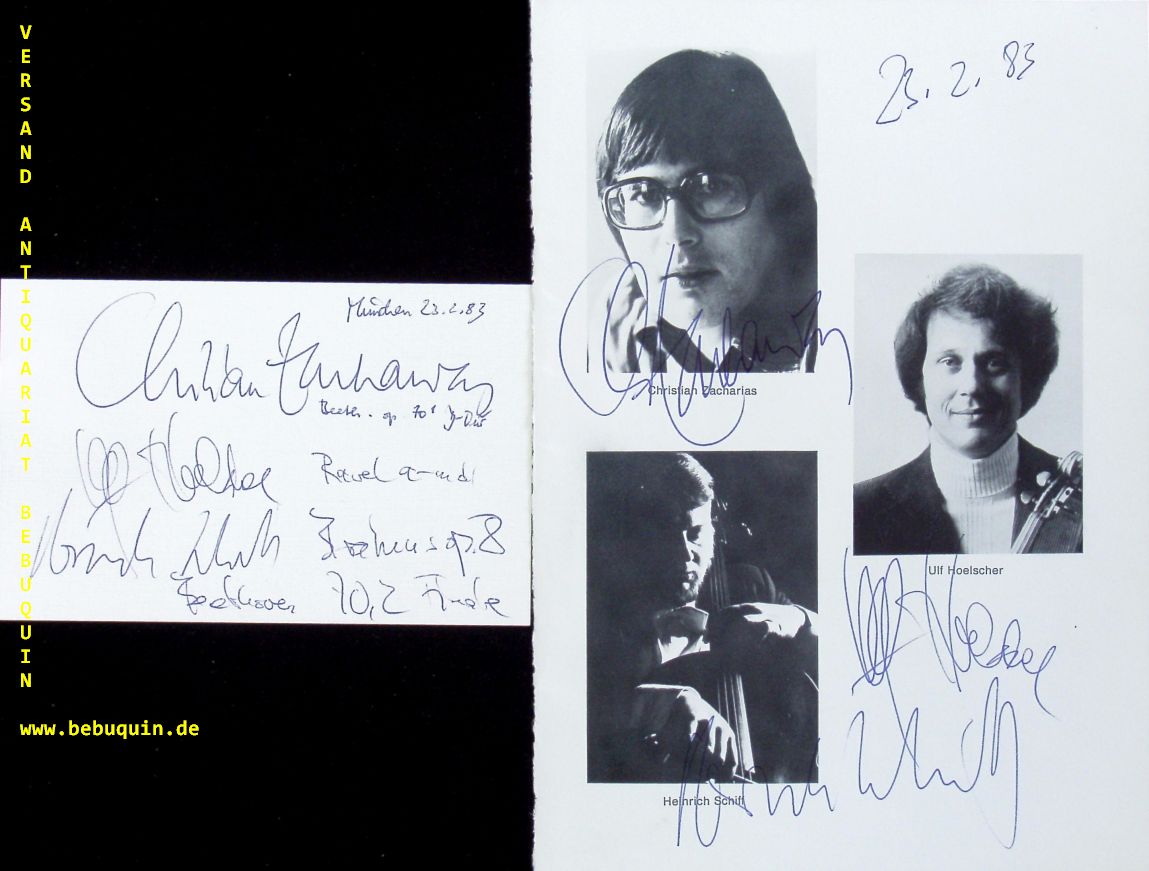 VERSAND ANTIQUARIAT BEBUQUIN
www.bebuquin.de
München 23.2.83
Christian Zacharias
Beeth. op. 70¹ D-Dur
Ulf Hoelscher Ravel a-moll
Heinrich Schiff Brahms op. 8
Beethoven 70,2 Finale
23. 2. 83
Christian Zacharias
Christian Zacharias
Ulf Hoelscher
Ulf Hoelscher
Heinrich Schiff
Heinrich Schiff